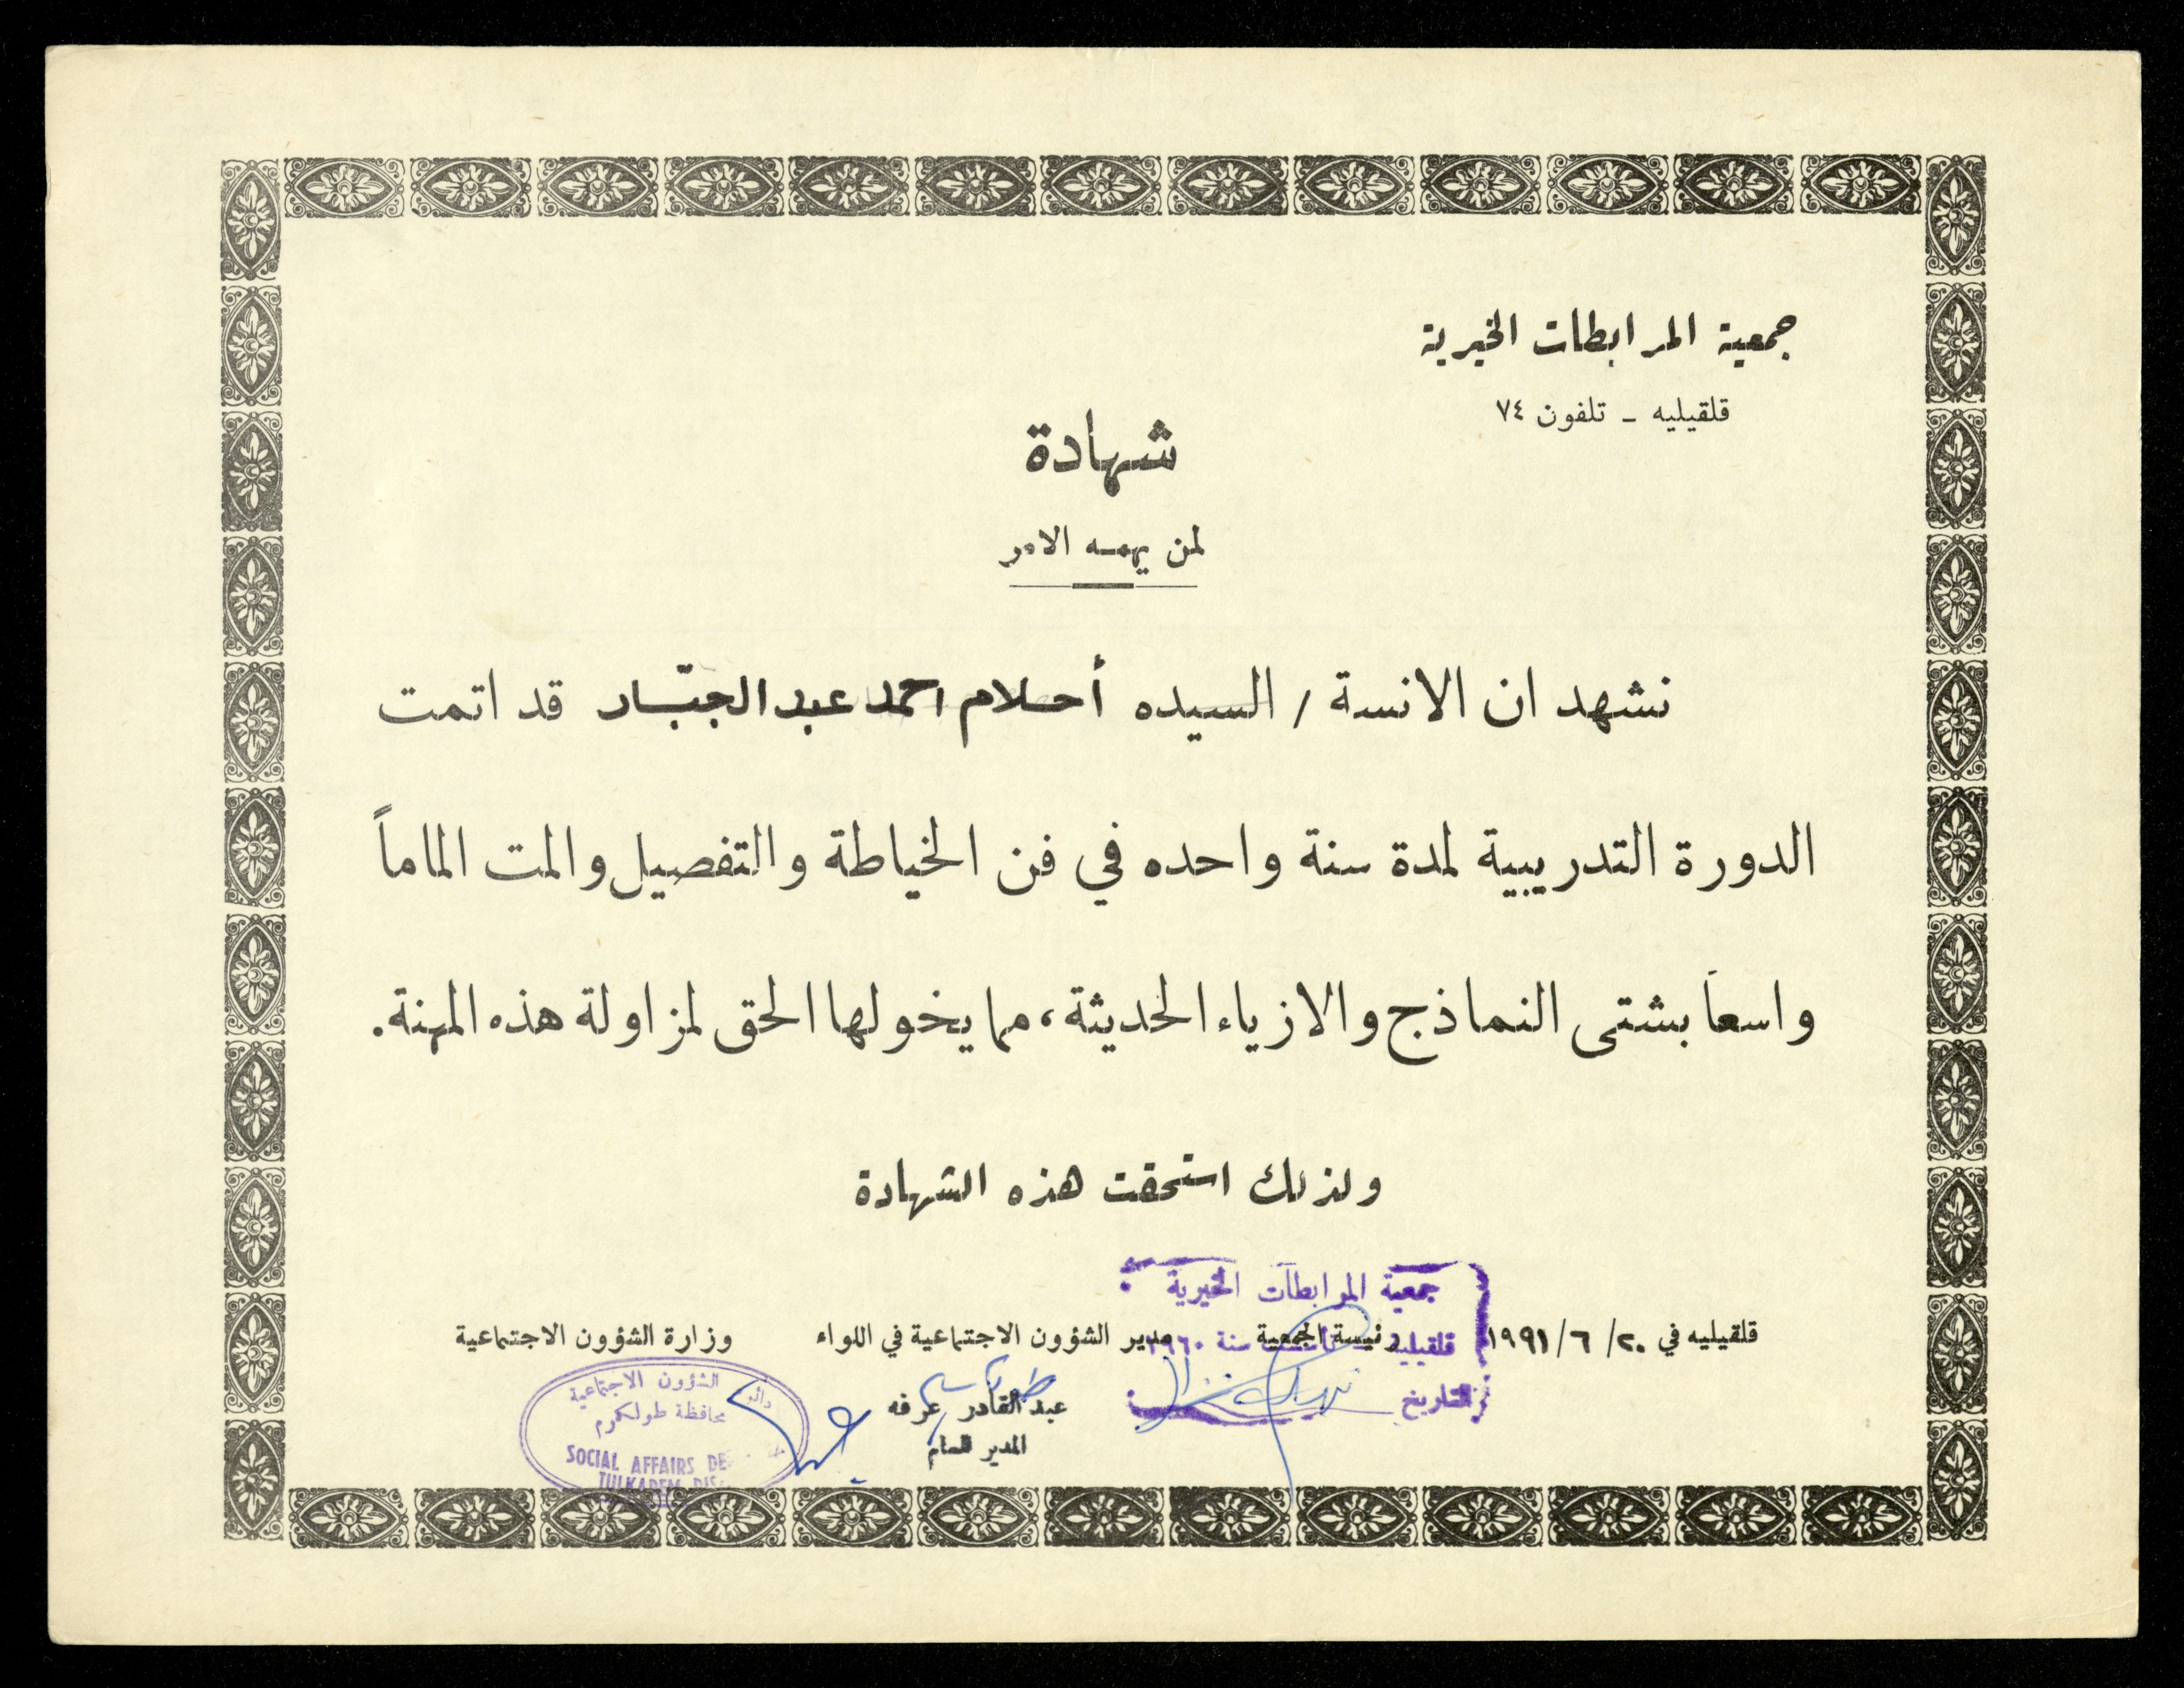 جمعية المرابطات الخيرية
قلقيليه - تلفون ٧٤
شهادة
لمن يهمه الامر
نشهد ان الانسة / السيده أحلام احمد عبد الجبّار قد اتمت
الدورة التدريبية لمدة سنة واحده في فن الخياطة والتفصيل والمت الماماً
واسعاً بشتى النماذج والازياء الحديثة، مما يخولها الحق لمزاولة هذه المهنة.
ولذلك استحقت هذه الشهادة
جمعية المرابطات الخيرية
قلقيليه في ٢٠/ ٦/ ١٩٩١ رئيسة الجمعية مدير الشؤون الاجتماعية في اللواء وزارة الشؤون الاجتماعية
قلقيلية سنة ١٩٦٠
التاريخ
عبد القادر عرفه
المدير العام
دائرة الشؤون الاجتماعية
محافظة طولكرم
SOCIAL AFFAIRS
TULKAREM